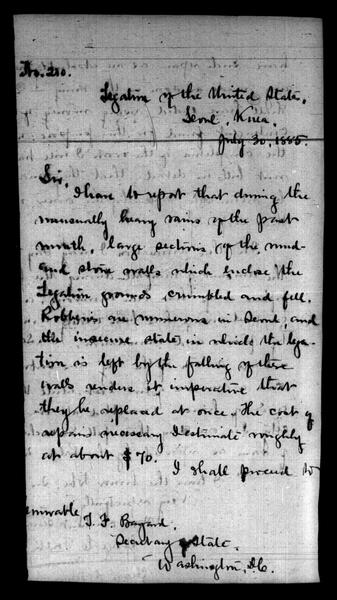 No. 210.
Legation of the United States,
Seoul, Korea.
July 30, 1885.
Sir,
I have to report that during the
unusually heavy rains of the past
month, large sections of the mud-
and stone walls which enclose the
Legation grounds crumbled and fell.
Robberies are numerous in Seoul, and
the insecure state in which the lega-
tion is left by the falling of these
walls renders it imperative that
they be replaced at once. The cost of
repairs necessary I estimate roughly
at about $70.
I shall proceed to
norable
T. F. Bayard.
Secretary of State.
Washington, D.C.